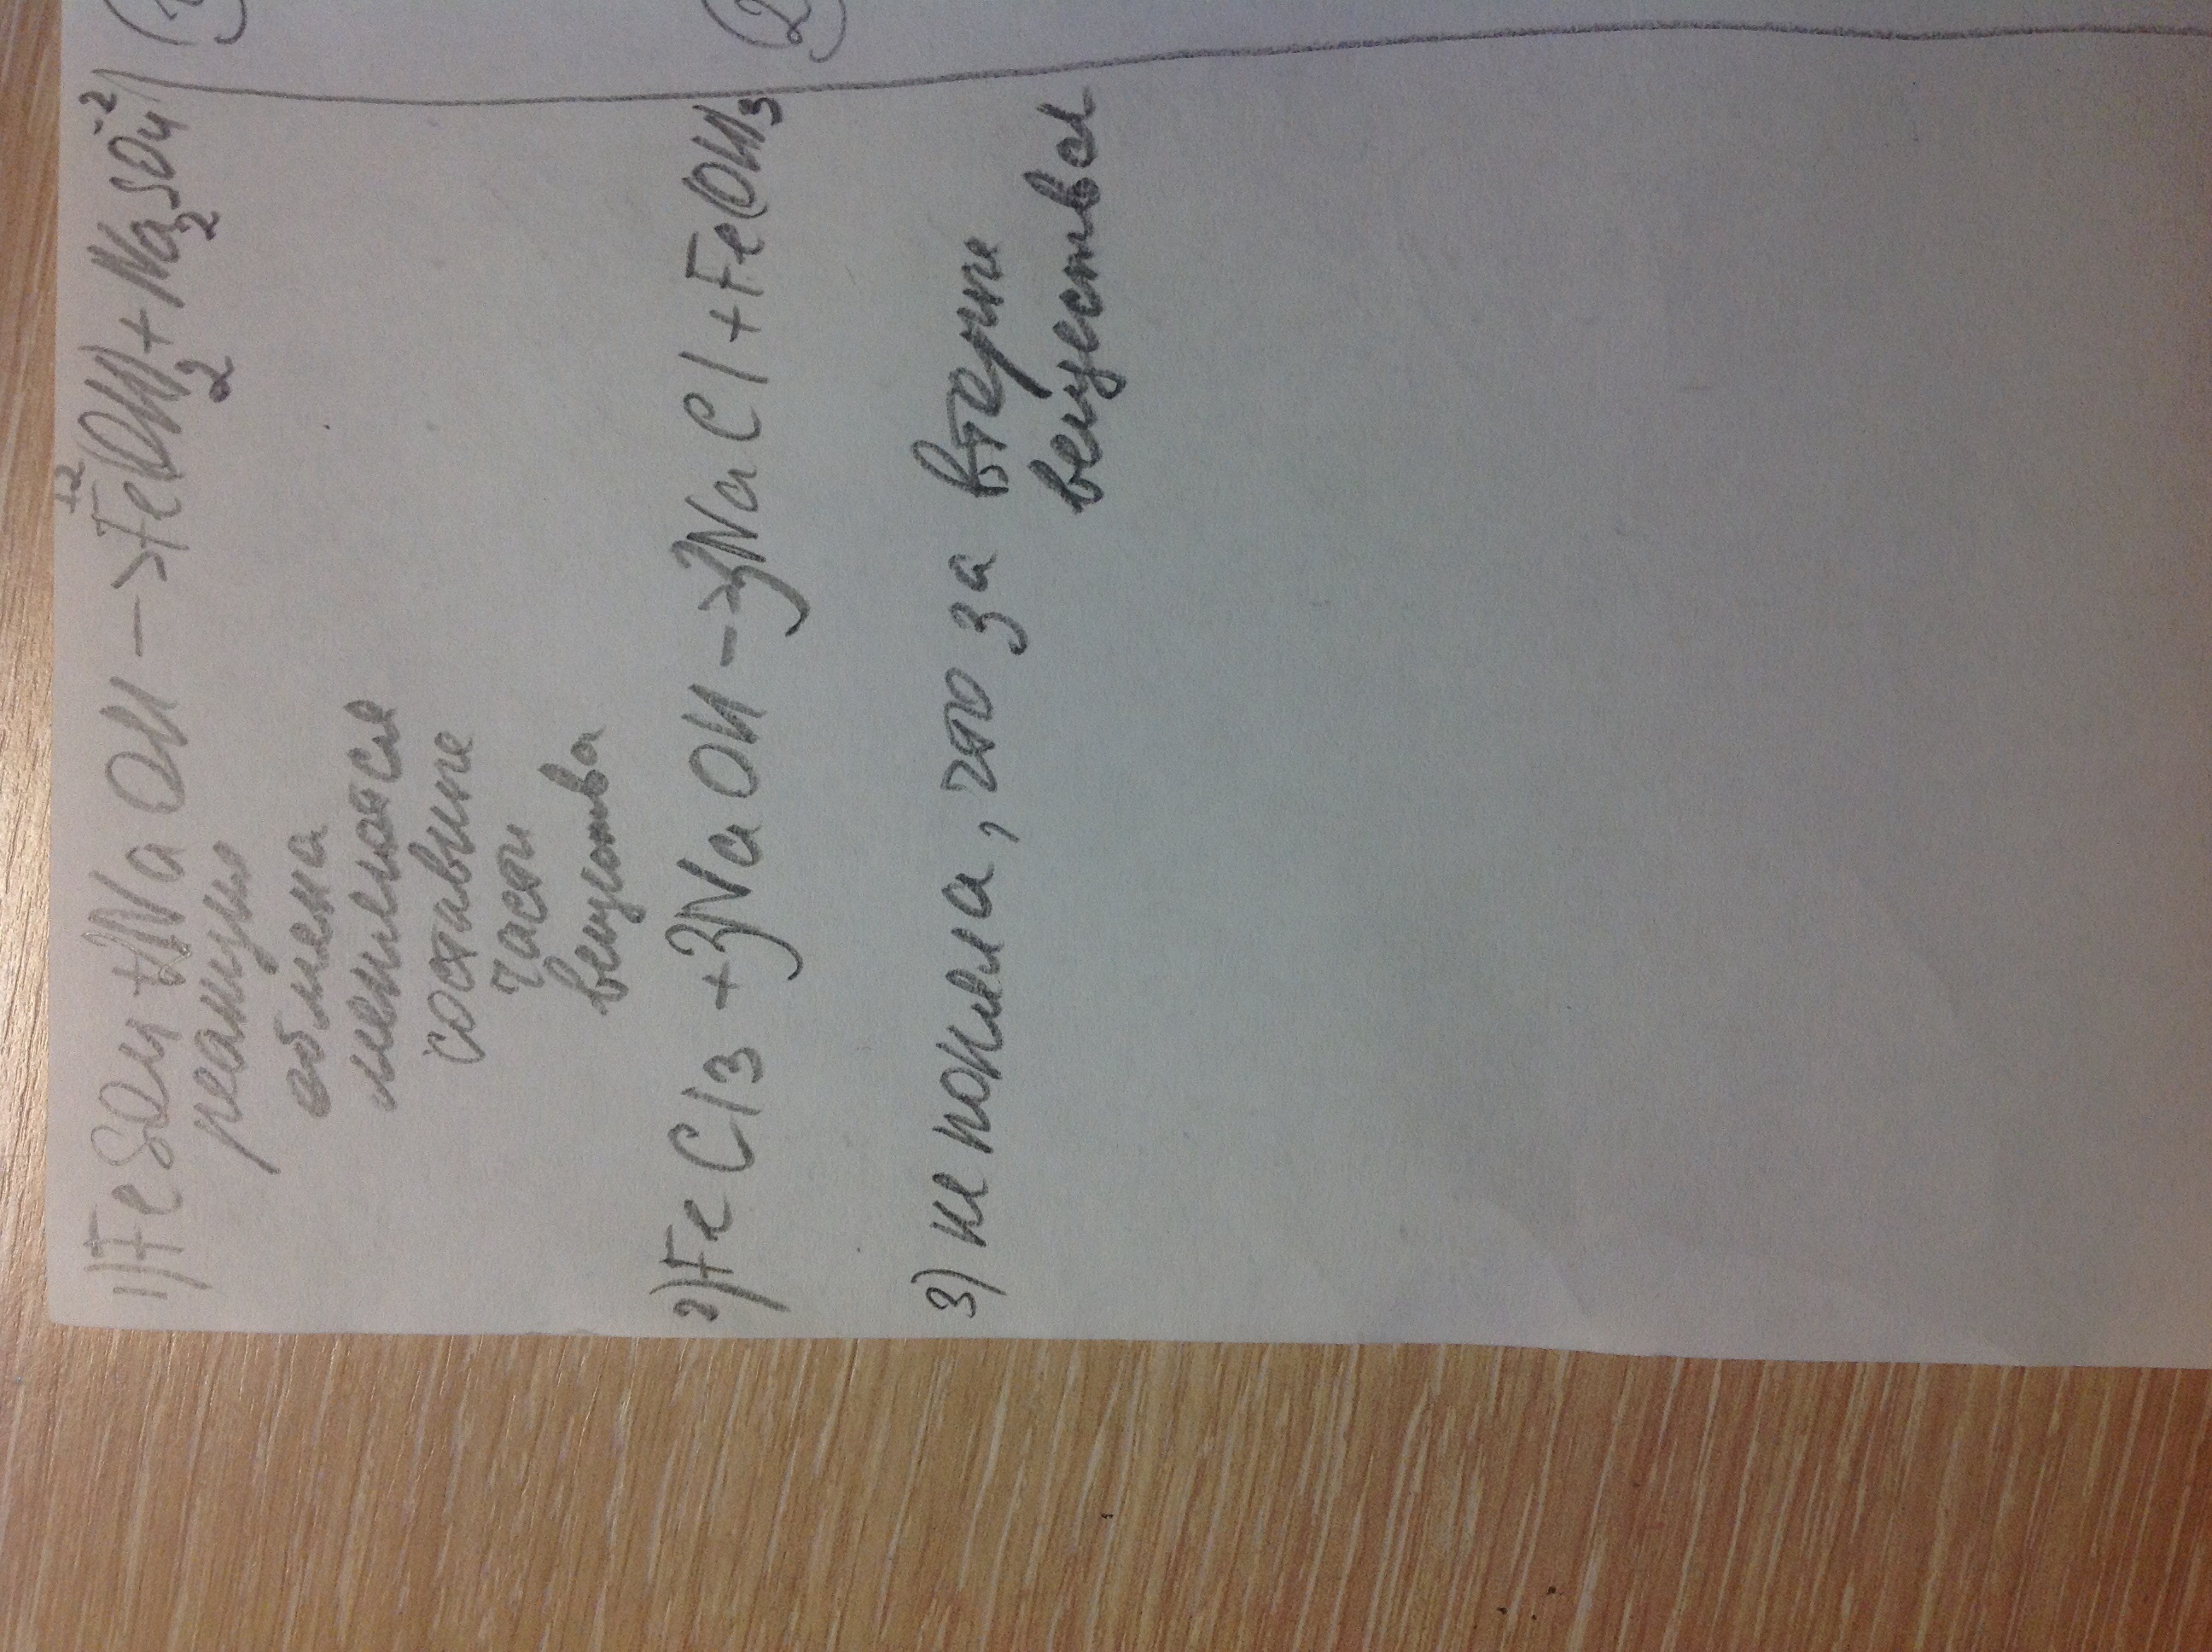 1) FeSO4 + 2NaOH –> Fe⁺²(OH)2 + Na2SO4⁻²
реакцию
обмена
меняются
составные
части
вещества
2) FeCl3 + 3NaOH –> 3NaCl + Fe(OH)3
3) не поняла, что за вторые
вещества
(2)